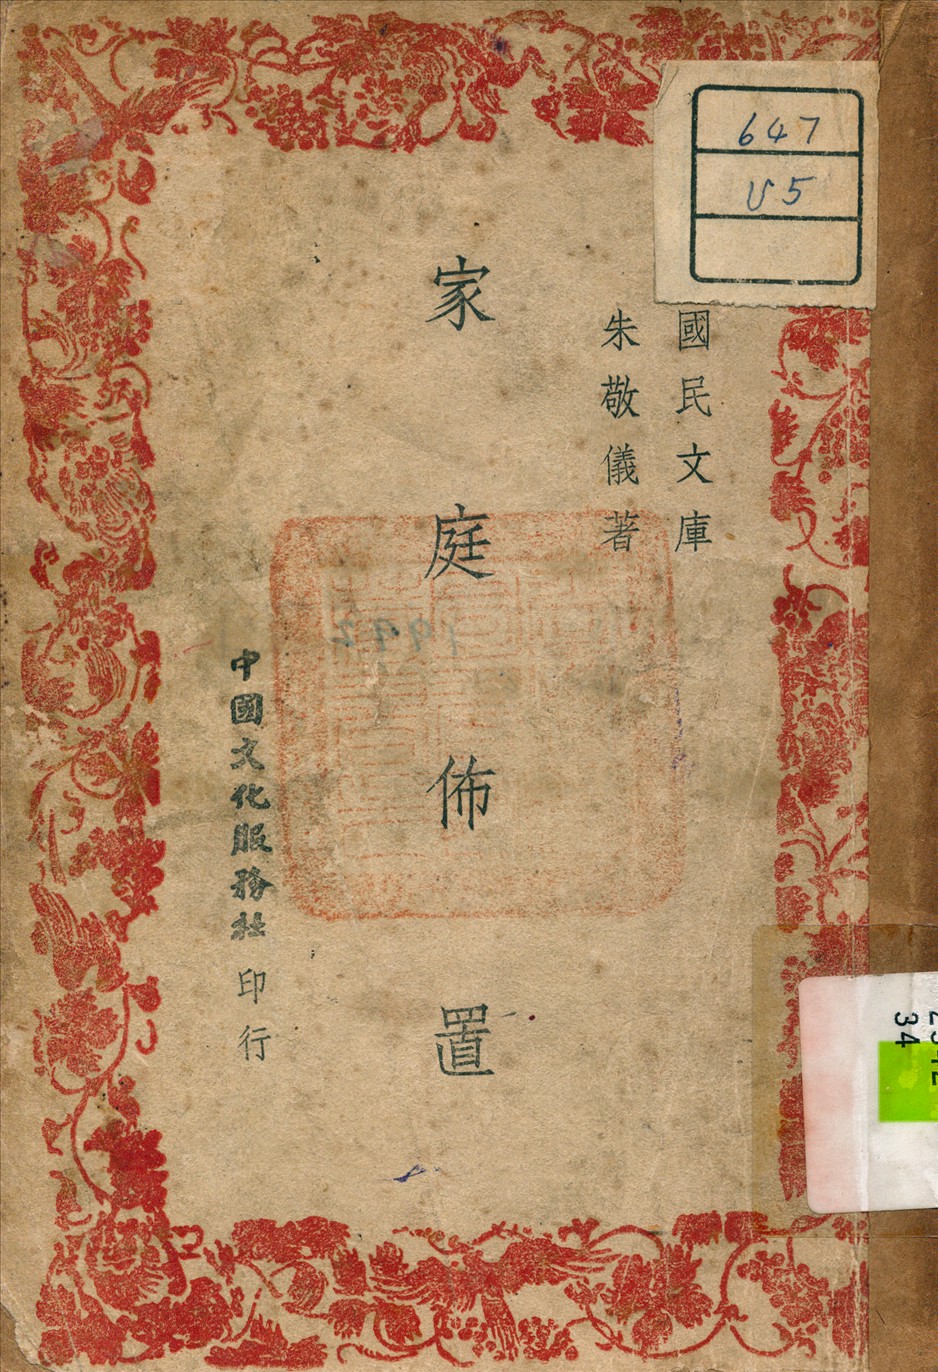 647
U5
國民文庫
朱敬儀著
家庭佈置
中國文化服務社印行
34